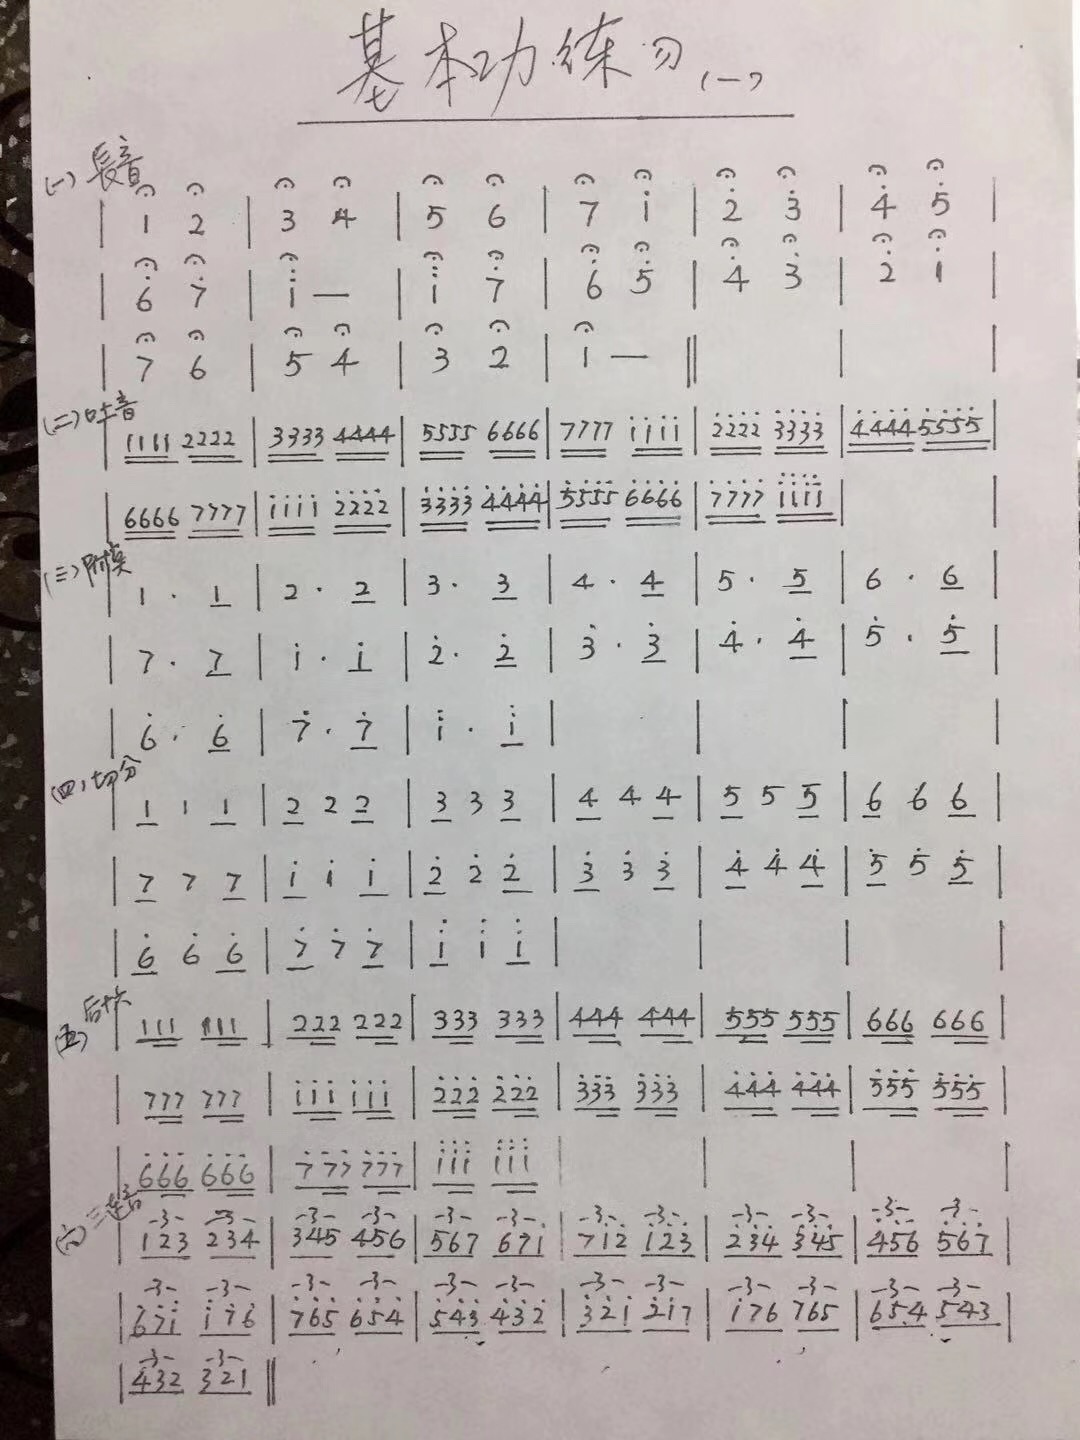 基本功练习(一)
(一)長音
| 1 2 | 3 4 | 5 6 | 7 i | 2̇ 3̇ | 4̇ 5̇ |
| 6̇ 7̇ | 1̈ — | 1̈ 7̇ | 6̇ 5̇ | 4̇ 3̇ | 2̇ i |
| 7 6 | 5 4 | 3 2 | 1 — ‖
(二)吐音
| 1111 2222 | 3333 4444 | 5555 6666 | 7777 iiii | 2̇2̇2̇2̇ 3̇3̇3̇3̇ | 4̇4̇4̇4̇ 5̇5̇5̇5̇
6666 7777 | iiii 2̇2̇2̇2̇ | 3̇3̇3̇3̇ 4̇4̇4̇4̇ | 5̇5̇5̇5̇ 6̇6̇6̇6̇ | 7̇7̇7̇7̇ 1̈1̈1̈1̈ |
(三)附点
| 1 · 1 | 2 · 2 | 3 · 3 | 4 · 4 | 5 · 5 | 6 · 6 |
| 7 · 7 | i · i | 2̇ · 2̇ | 3̇ · 3̇ | 4̇ · 4̇ | 5̇ · 5̇ |
| 6̇ · 6̇ | 7̇ · 7̇ | 1̈ · 1̈ |
(四)切分
| 1 1 1 | 2 2 2 | 3 3 3 | 4 4 4 | 5 5 5 | 6 6 6 |
| 7 7 7 | i i i | 2̇ 2̇ 2̇ | 3̇ 3̇ 3̇ | 4̇ 4̇ 4̇ | 5̇ 5̇ 5̇ |
| 6̇ 6̇ 6̇ | 7̇ 7̇ 7̇ | 1̈ 1̈ 1̈ |
(五)后十六
| 111 111 | 222 222 | 333 333 | 444 444 | 555 555 | 666 666 |
| 777 777 | iii iii | 2̇2̇2̇ 2̇2̇2̇ | 3̇3̇3̇ 3̇3̇3̇ | 4̇4̇4̇ 4̇4̇4̇ | 5̇5̇5̇ 5̇5̇5̇ |
| 6̇6̇6̇ 6̇6̇6̇ | 7̇7̇7̇ 7̇7̇7̇ | 1̈1̈1̈ 1̈1̈1̈ |
(六)三连音
| 123 234 | 345 456 | 567 67i | 7i2̇ i2̇3̇ | 2̇3̇4̇ 3̇4̇5̇ | 4̇5̇6̇ 5̇6̇7̇ |
| 6̇7̇1̈ 1̈7̇6̇ | 7̇6̇5̇ 6̇5̇4̇ | 5̇4̇3̇ 4̇3̇2̇ | 3̇2̇i 2̇i7 | i76 765 | 654 543 |
| 432 321 ‖